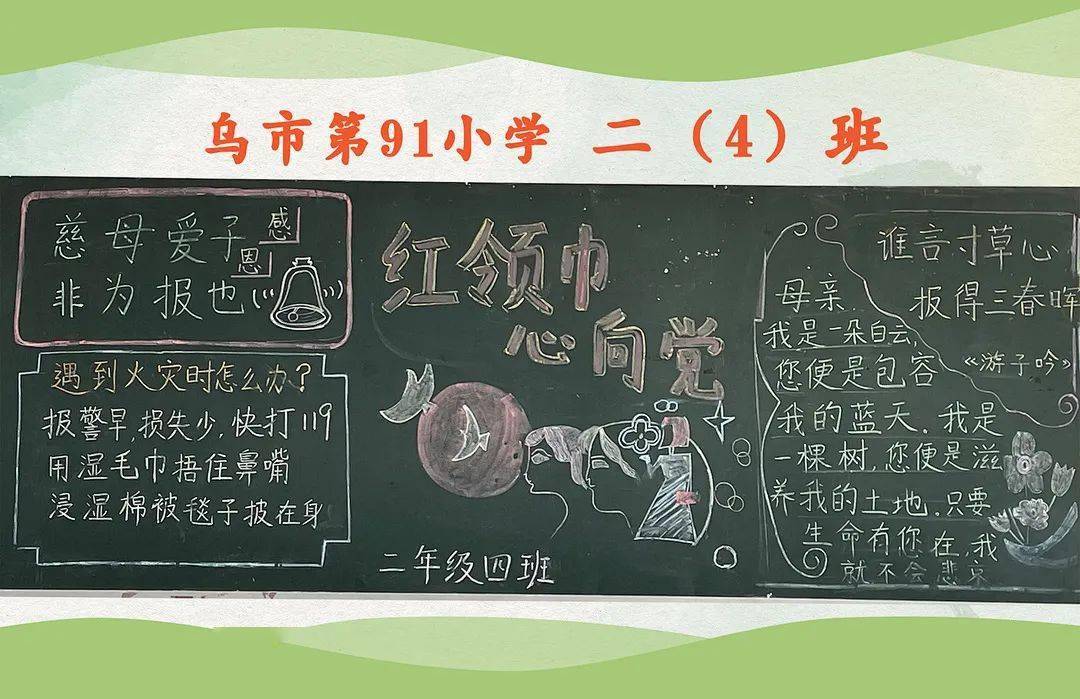 乌市第91小学 二（4）班
慈母爱子
感恩
非为报也
遇到火灾时怎么办？
报警早,损失少,快打119
用湿毛巾捂住鼻嘴
浸湿棉被毯子披在身
红领巾
心向党
二年级四班
谁言寸草心
报得三春晖
《游子吟》
母亲
我是一朵白云,
您便是包容
我的蓝天.我是
一棵树,您便是滋
养我的土地.只要
生命有你在,我
就不会悲哀